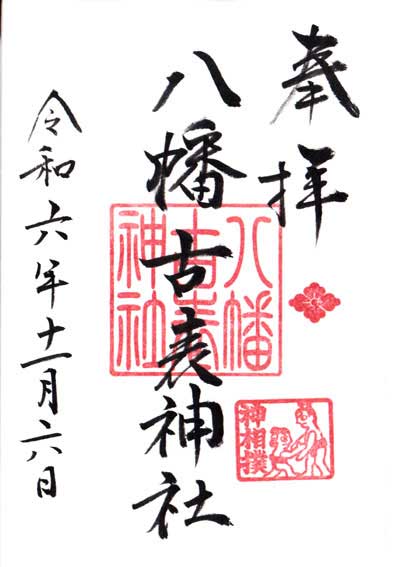 奉拝
八幡古表神社
八幡
古表
神社
神相撲
令和六年十一月六日